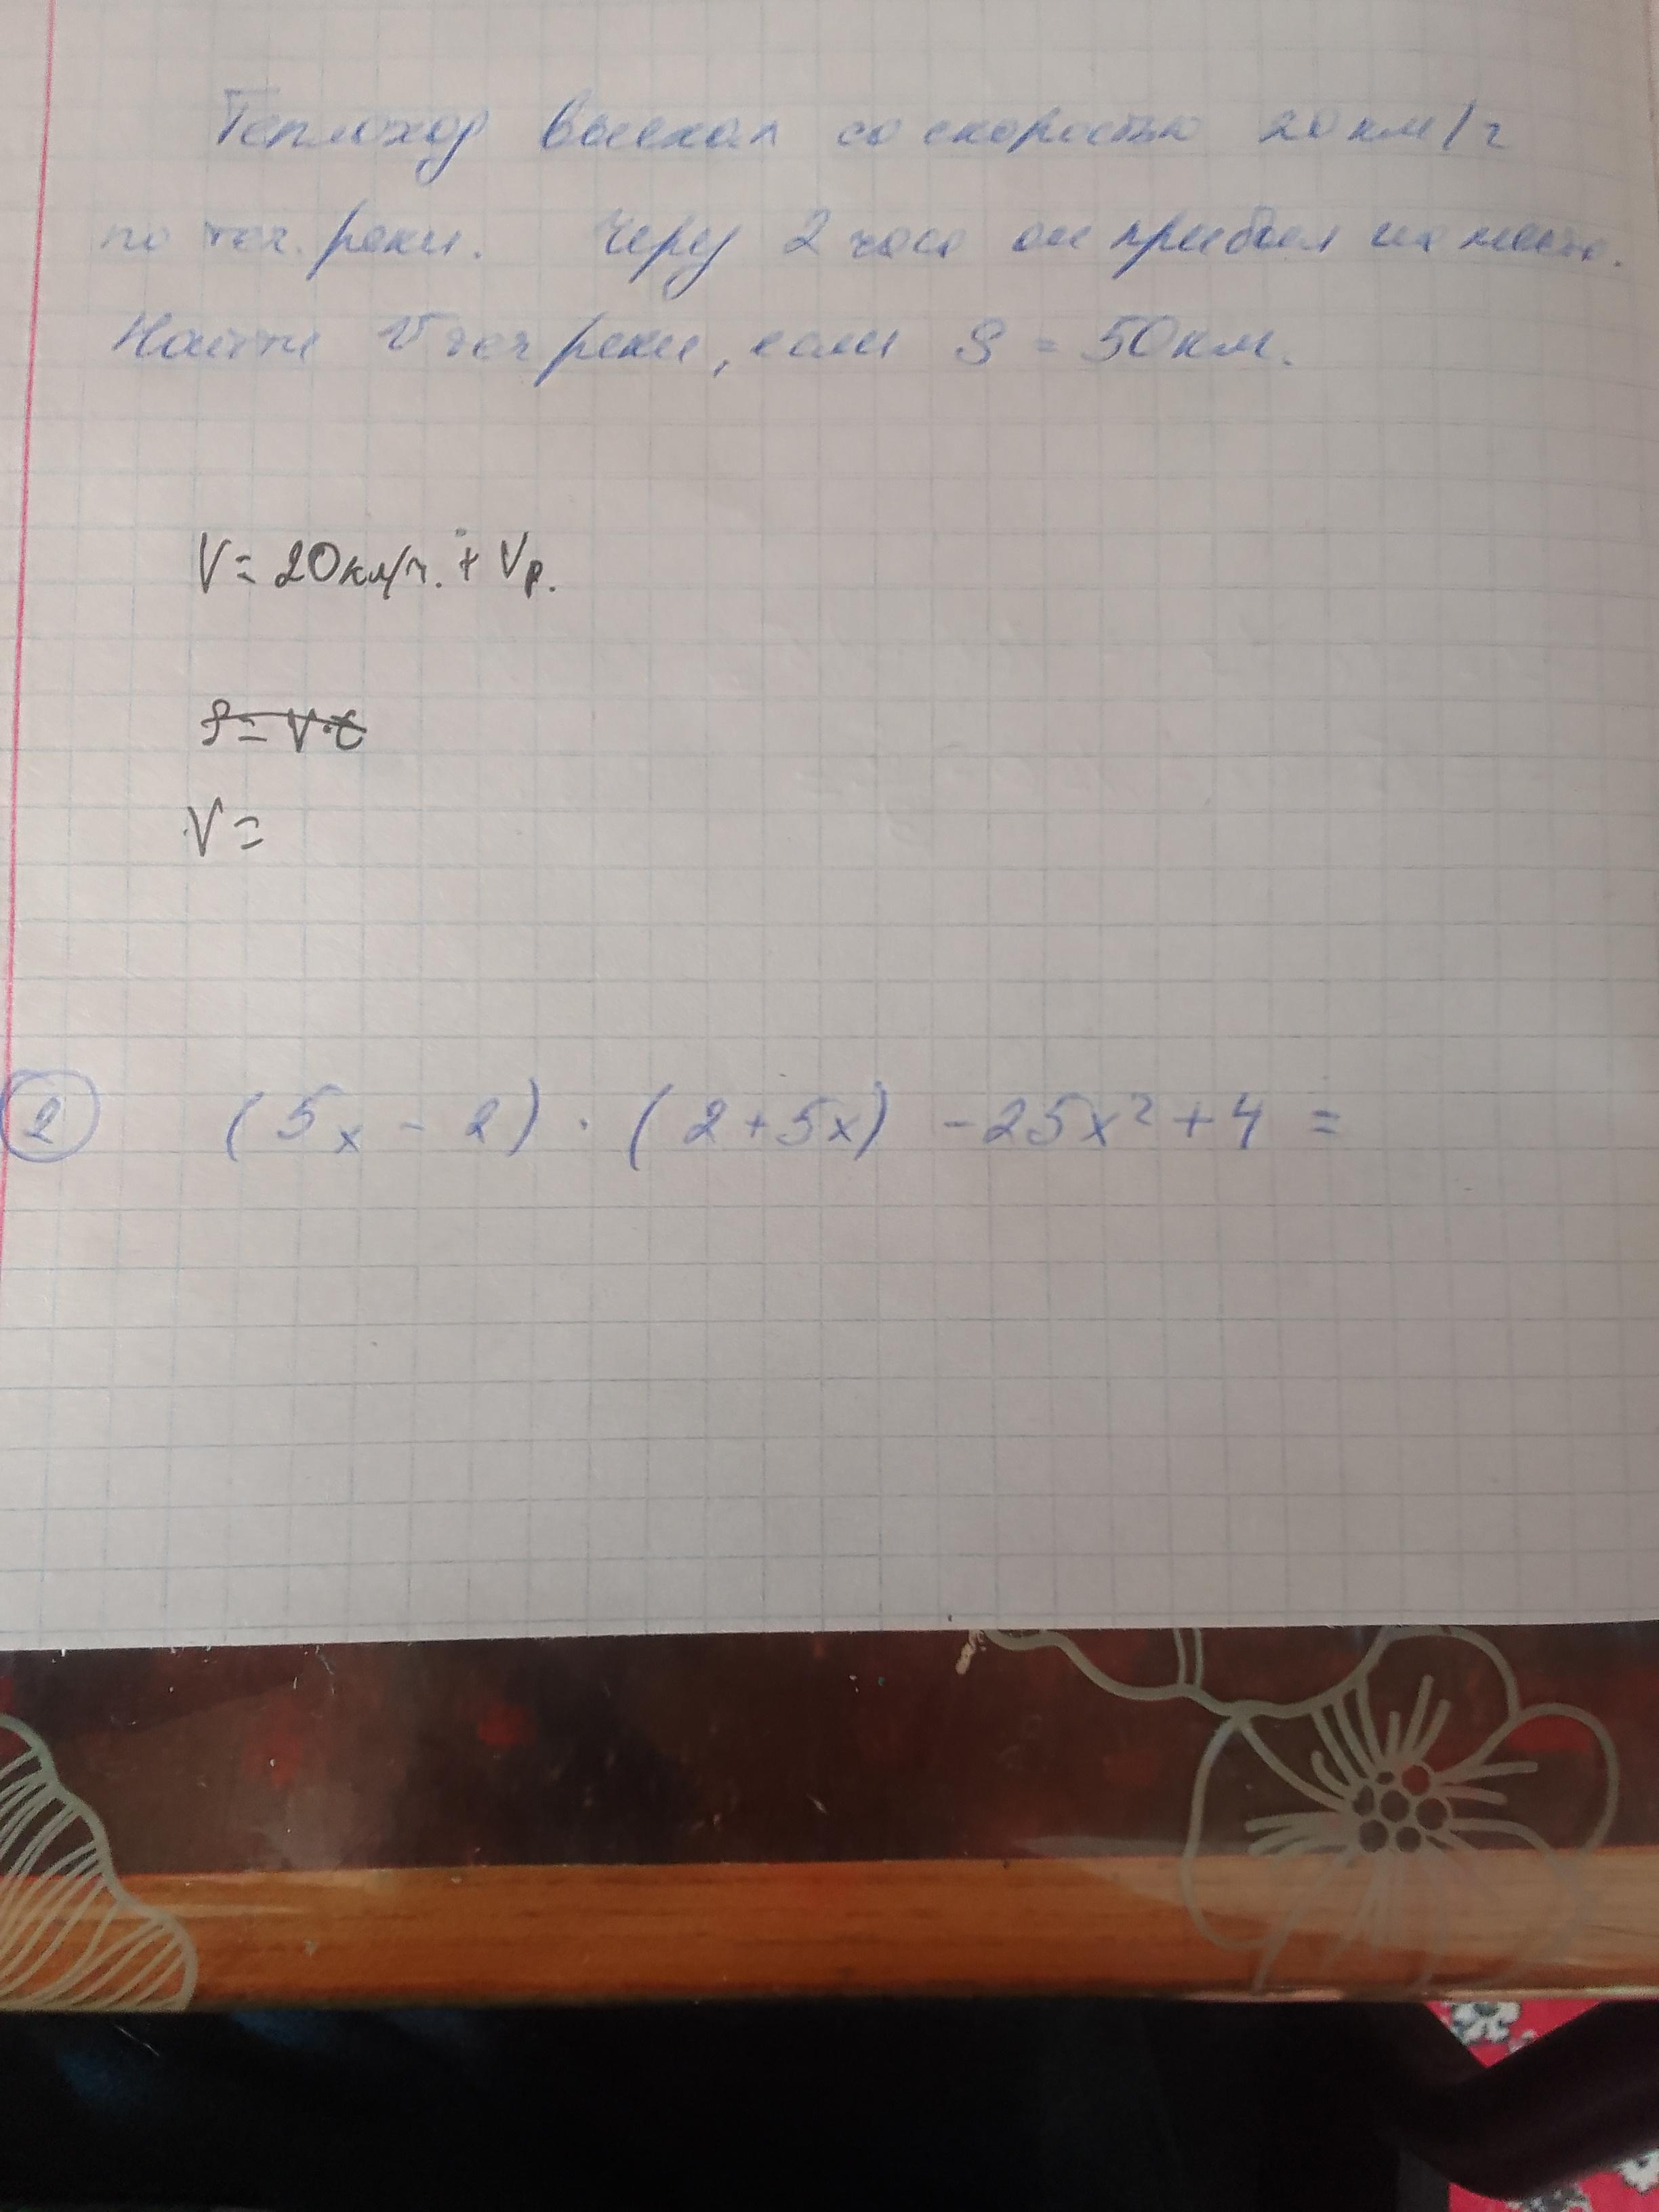 Теплоход выехал со скоростью 20 км/ч
по теч. реки. Через 2 часа он прибыл на место.
Найти V теч реки, если S = 50 км.
V = 20 км/ч. + Vр.
S = V·t
V =
2 (5x - 2) · (2 + 5x) - 25x² + 4 =